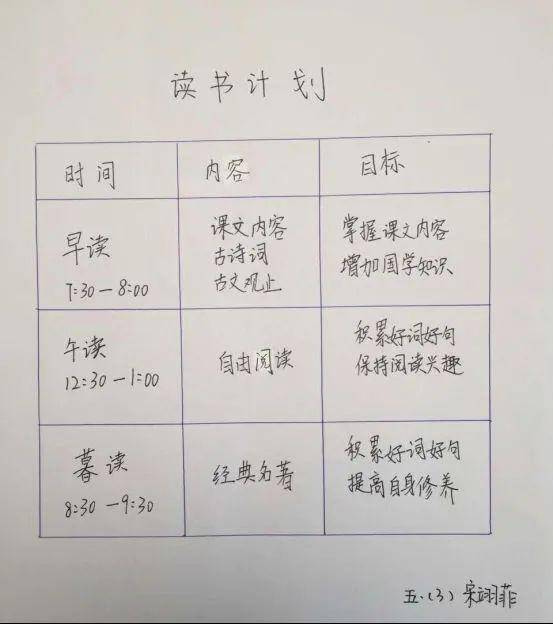 读书计划
时间 内容 目标
早读
7:30—8:00
课文内容
古诗词
古文观止
掌握课文内容
增加国学知识
午读
12:30—1:00
自由阅读
积累好词好句
保持阅读兴趣
暮读
8:30—9:30
经典名著
积累好词好句
提高自身修养
五.(3) 宋翊菲